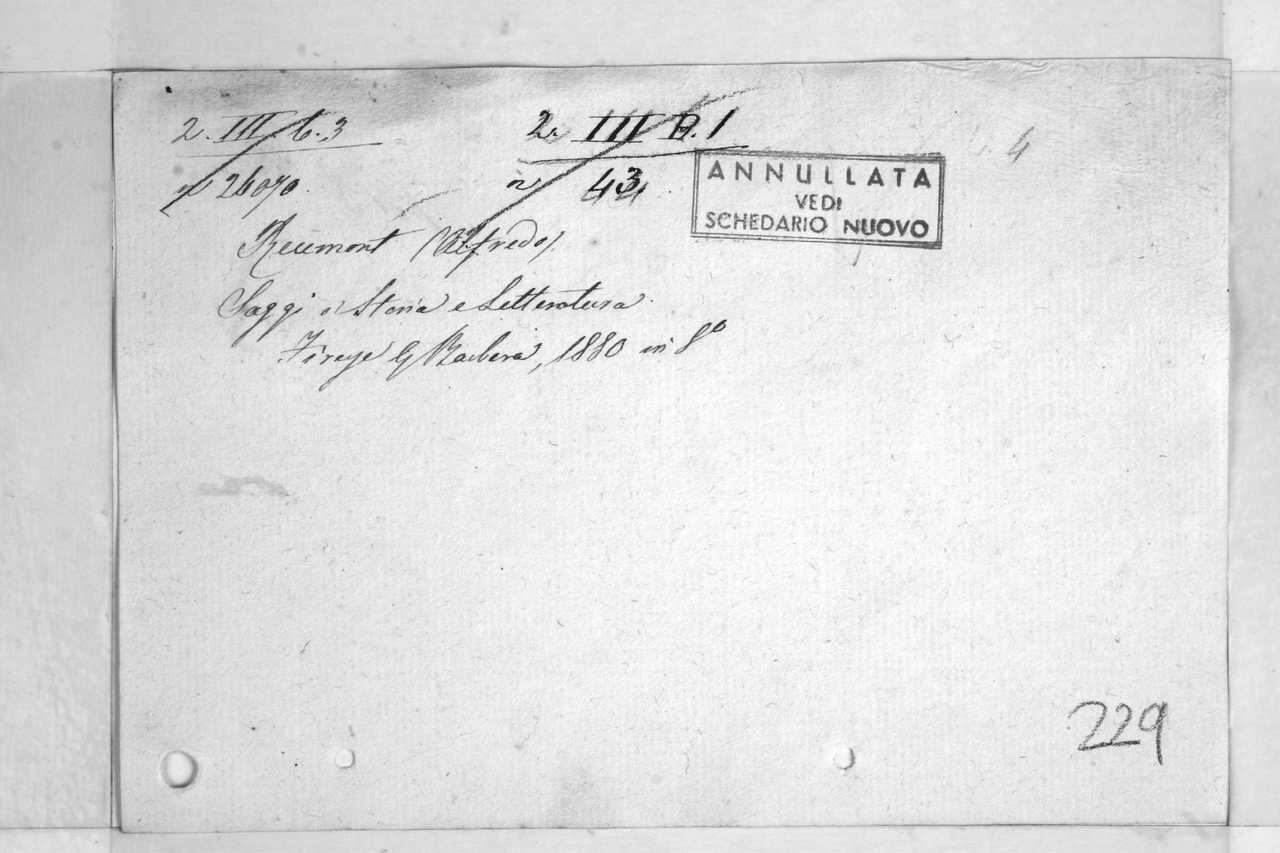 2. III t. 3
2. III B. 1
4
n 26070
n 43
ANNULLATA
VEDI
SCHEDARIO NUOVO
Reumont (Alfredo).
Saggi di Storia e Letteratura.
Firenze G Barbera, 1880 in 8º
229